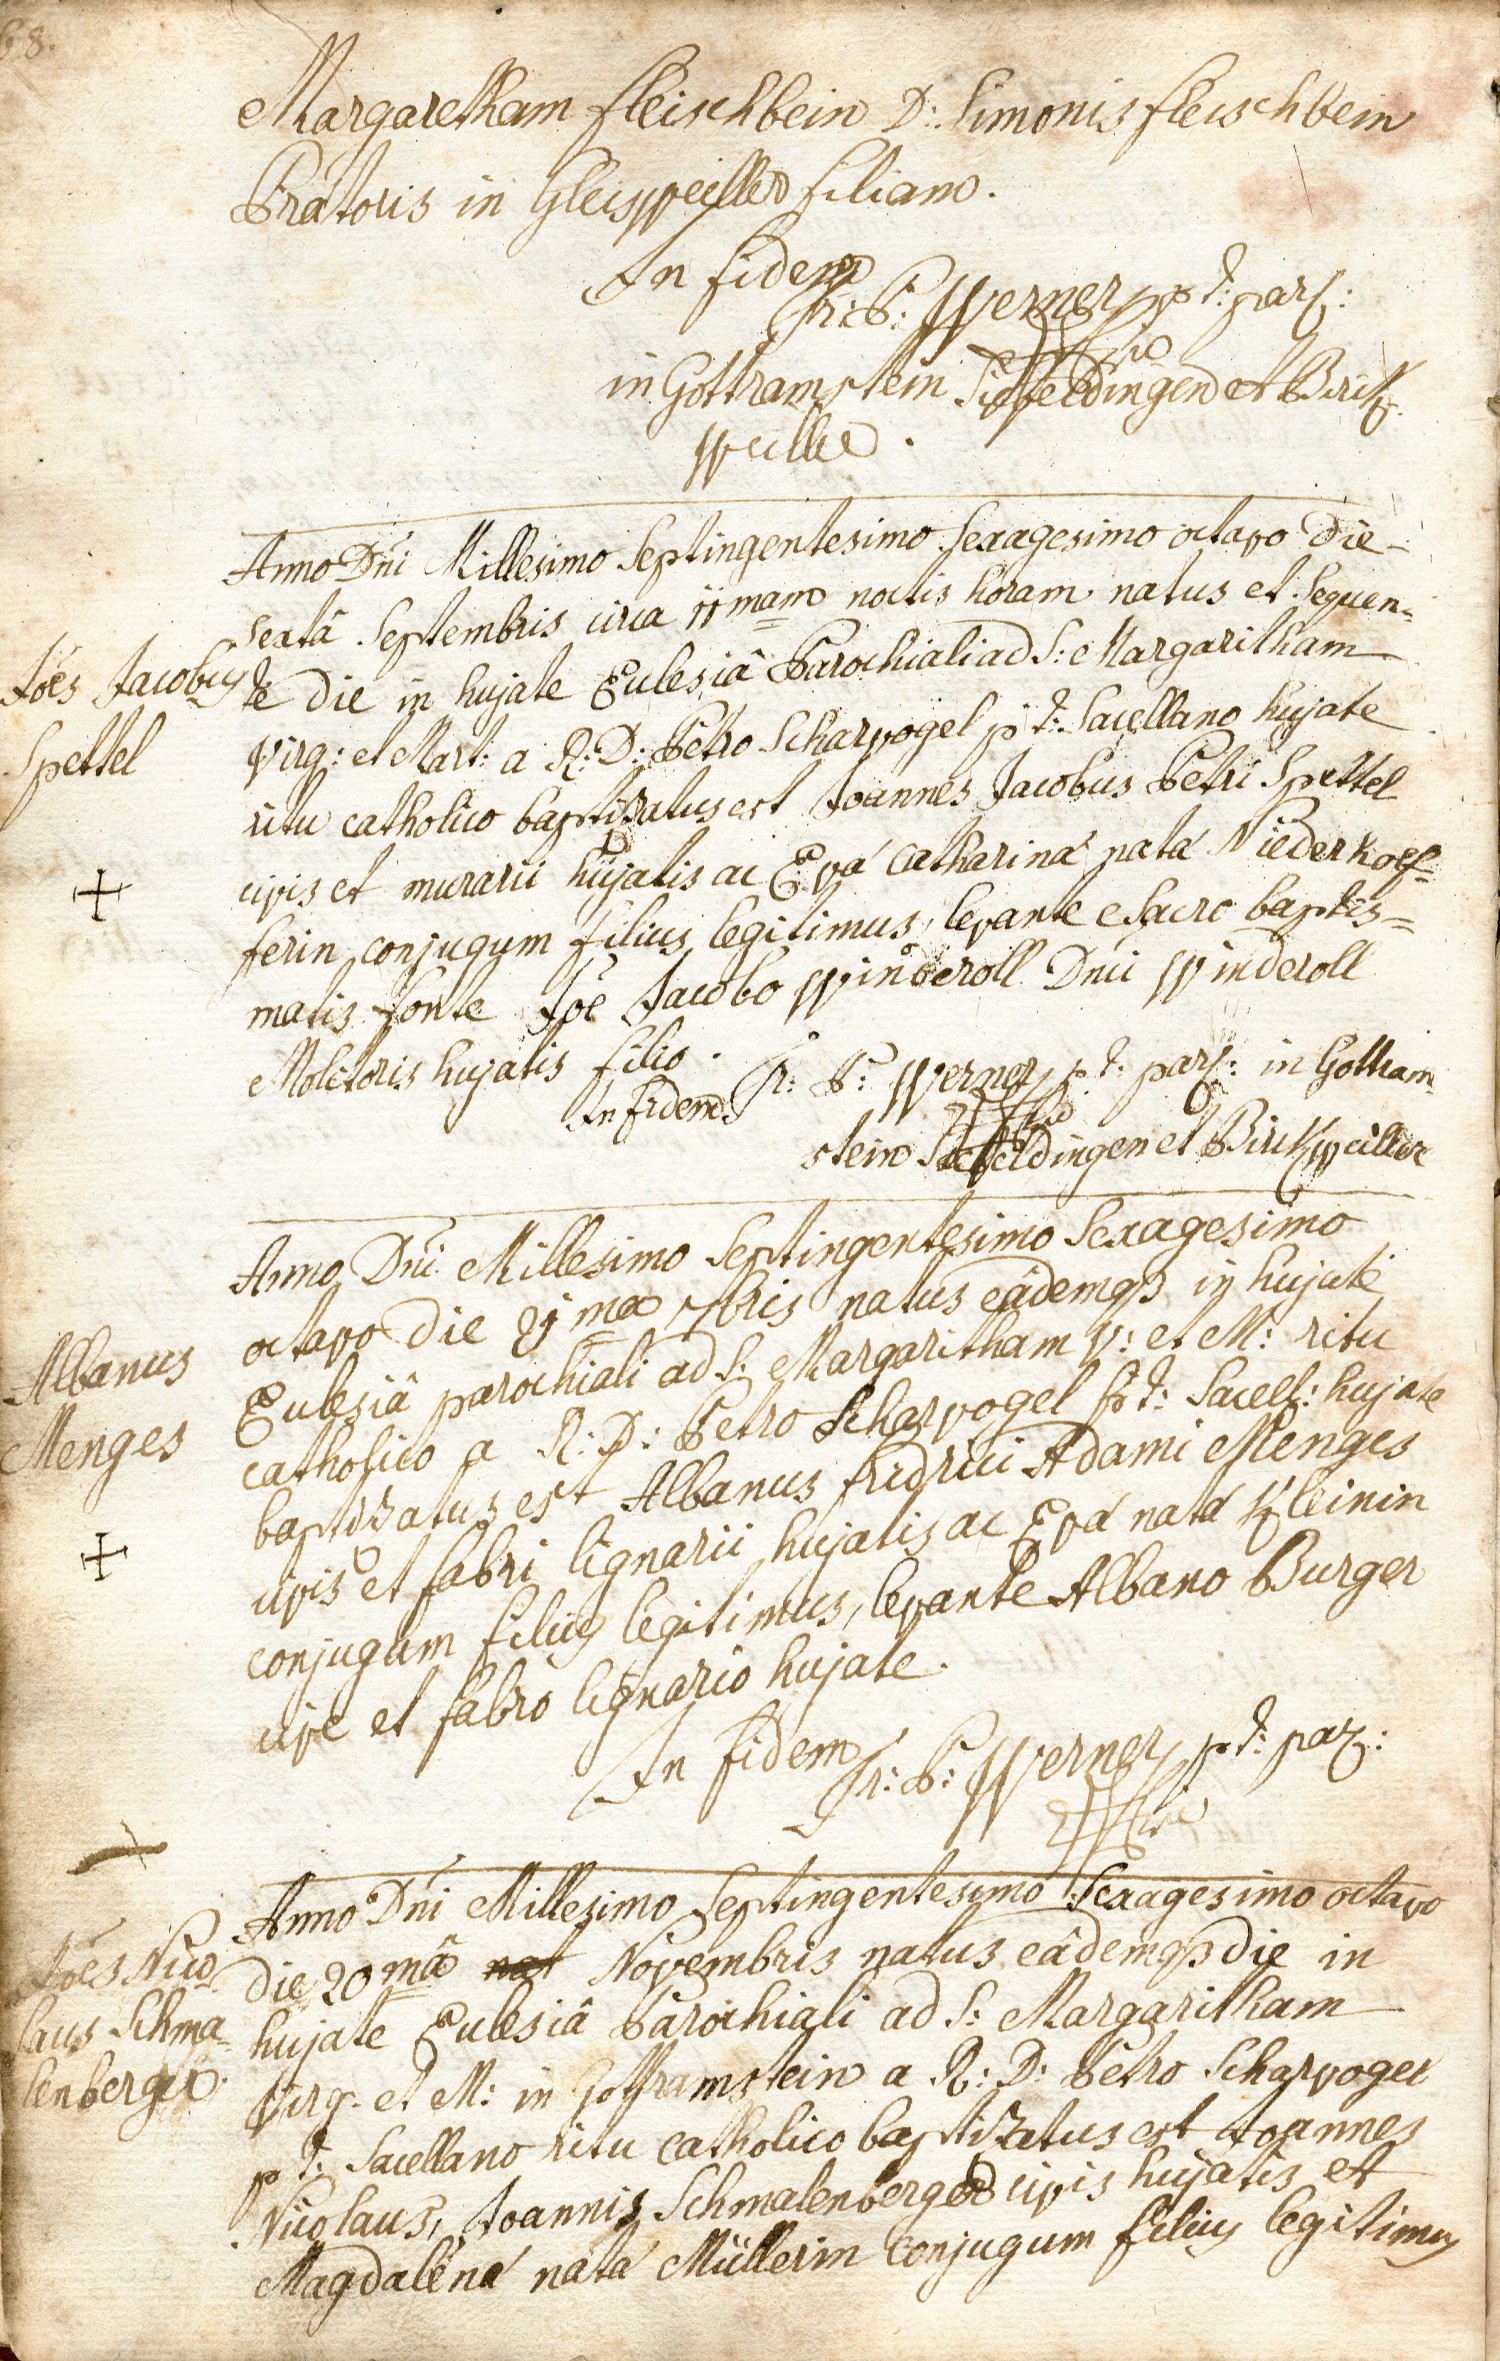 68.
Margaretham fleischbein D: Simonis fleischbein
Prætoris in Gleisweiller filiam.
In fidem
Fr: P: Werner p t: par:
in Gottramstein Siefeldingen et Birk
weiller.
Anno Dni Millesimo Septingentesimo Sexagesimo octavo Die
sextâ Septembris circa 11mam noctis horam natus et Sequen-
te Die in hujate Ecclesiâ Parochiali ad S: Margaritham
Virg: et Mart: a R: D: Petro Scharvogel p t: Sacellano hujate
ritu catholico baptizatus est Joannes Jacobus Petri Spettel
civis et murarii hujatis ac Evá Catharinâ natá Niederkoef-
ferin conjugum filius legitimus, levante e Sacro baptis=
matis fonte Joe Jacobo Winderoll Dni Winderoll
Molitoris hujatis filio.
In fidem Fr: P: Werner p. t: par: in Gottram
stein Siefeldingen et Birkweiller
Joes Jacobus
Spettel
Anno Dni Millesimo Septingentesimo Sexagesimo
octavo Die 21ma 7bris natus eâdemq3 in hujate
Ecclesiâ parochiali ad S: Margaritham V: et M: ritu
catholico a R: D: Petro Scharvogel p t: Sacell: hujate
baptizatus est Albanus fridrici Adami Menges
civis et fabri lignarii hujatis ac Evá natá Kleinin
conjugum filius legitimus, levante Albano Burger
cive et fabro lignario hujate.
In fidem Fr: P: Werner p t: par:
Albanus
Menges
Anno Dni Millesimo Septingentesimo Sexagesimo octavo
die 20mâ nat Novembris natus eâdemq3 die in
hujate Ecclesiâ Parochiali ad S: Margaritham
Virg. et M: in Gottramstein a R: D: Petro Scharvogel
p t: Sacellano ritu catholico baptizatus est Joannes
Nicolaus, Joannis Schmalenberger civis hujatis et
Magdalená natá Müllerin conjugum filius legitimus
Joes Nico
laus Schma-
lenberger.